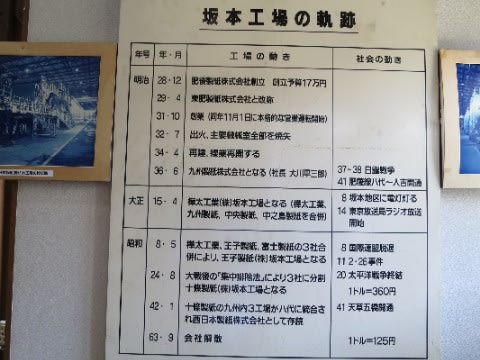 坂本工場の軌跡
年号 年・月 工場の動き 社会の動き
明治 28・12 肥後製紙株式会社創立 創立予算17万円
29・4 東肥製紙株式会社と改称
31・10 創業(同年11月1日に本格的な営業運転開始)
32・7 出火、主要機械室全部を焼失
34・4 再建、操業再開する
36・6 九州製紙株式会社となる(社長 大川平三郎)
37~38 日露戦争
41 肥薩線八代~人吉開通
大正 15・4 樺太工業(株)坂本工場となる(樺太工業、
九州製紙、中央製紙、中之島製紙を合併)
8 坂本地区に電灯灯る
14 東京放送局ラジオ放送
開始
昭和 8・5 樺太工業、王子製紙、富士製紙の3社合
併により、王子製紙(株)坂本工場となる
8 国際連盟脱退
11 2・26事件
24・8 大戦後の「集中排除法」により3社に分割
十條製紙(株)坂本工場となる
20 太平洋戦争終結
1ドル=360円
42・1 十條製紙の九州内3工場が八代に統合さ
れ西日本製紙株式会社として存続
41 天草五橋開通
63・9 会社解散 1ドル=125円